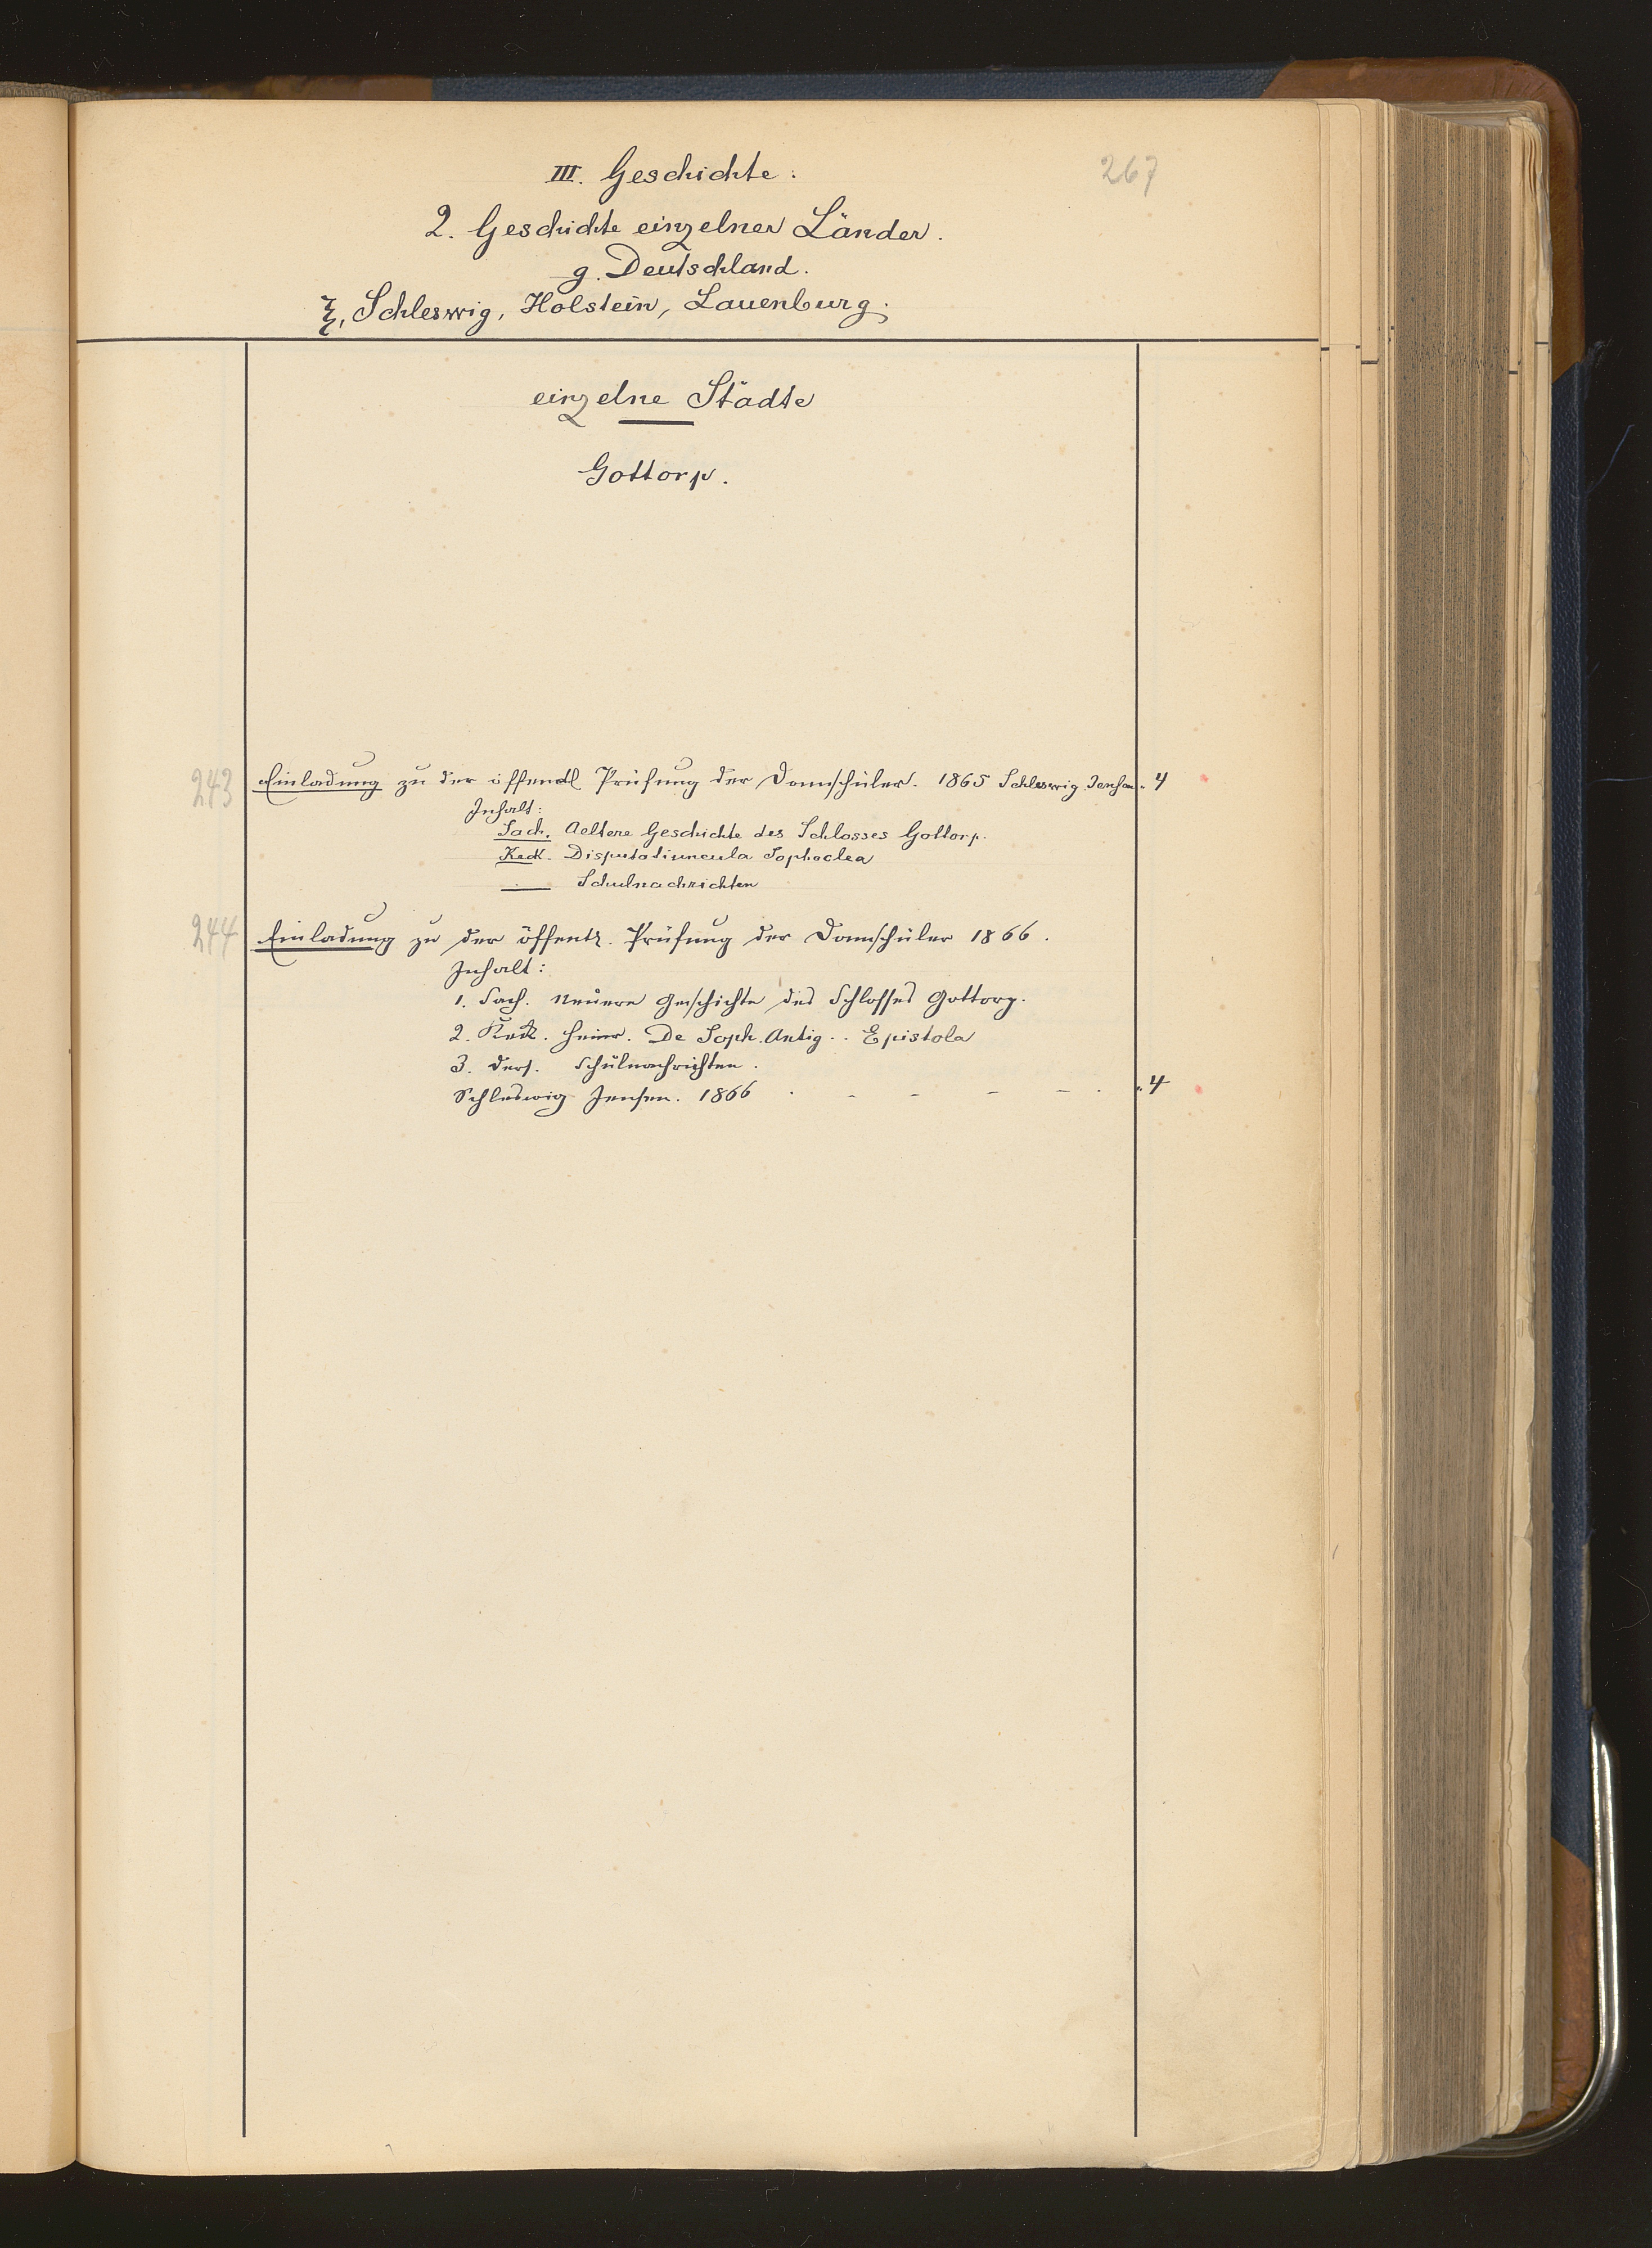 267
III. Geschichte:
2. Geschichte einzelner Länder.
g. Deutschland.
ξ, Schleswig, Holstein, Lauenburg.
einzelne Städte
Gottorp.
243 Einladung zu der öffentl. Prüfung der Domschüler. 1865 Schleswig. Jensen. 4
Inhalt:
Sach. Aeltere Geschichte des Schlosses Gottorp.
Keck. Disputatiuncula Sophoclea
— Schulnachrichten
244 Einladung zu der öffentl. Prüfung der Domschüler 1866.
Inhalt:
1. Sach. Neuere Geschichte des Schlosses Gottorp.
2. Keck. Heinr. De Soph. Antig.. Epistola
3. Ders. Schulnachrichten.
Schleswig Jensen. 1866 . - - - - . 4